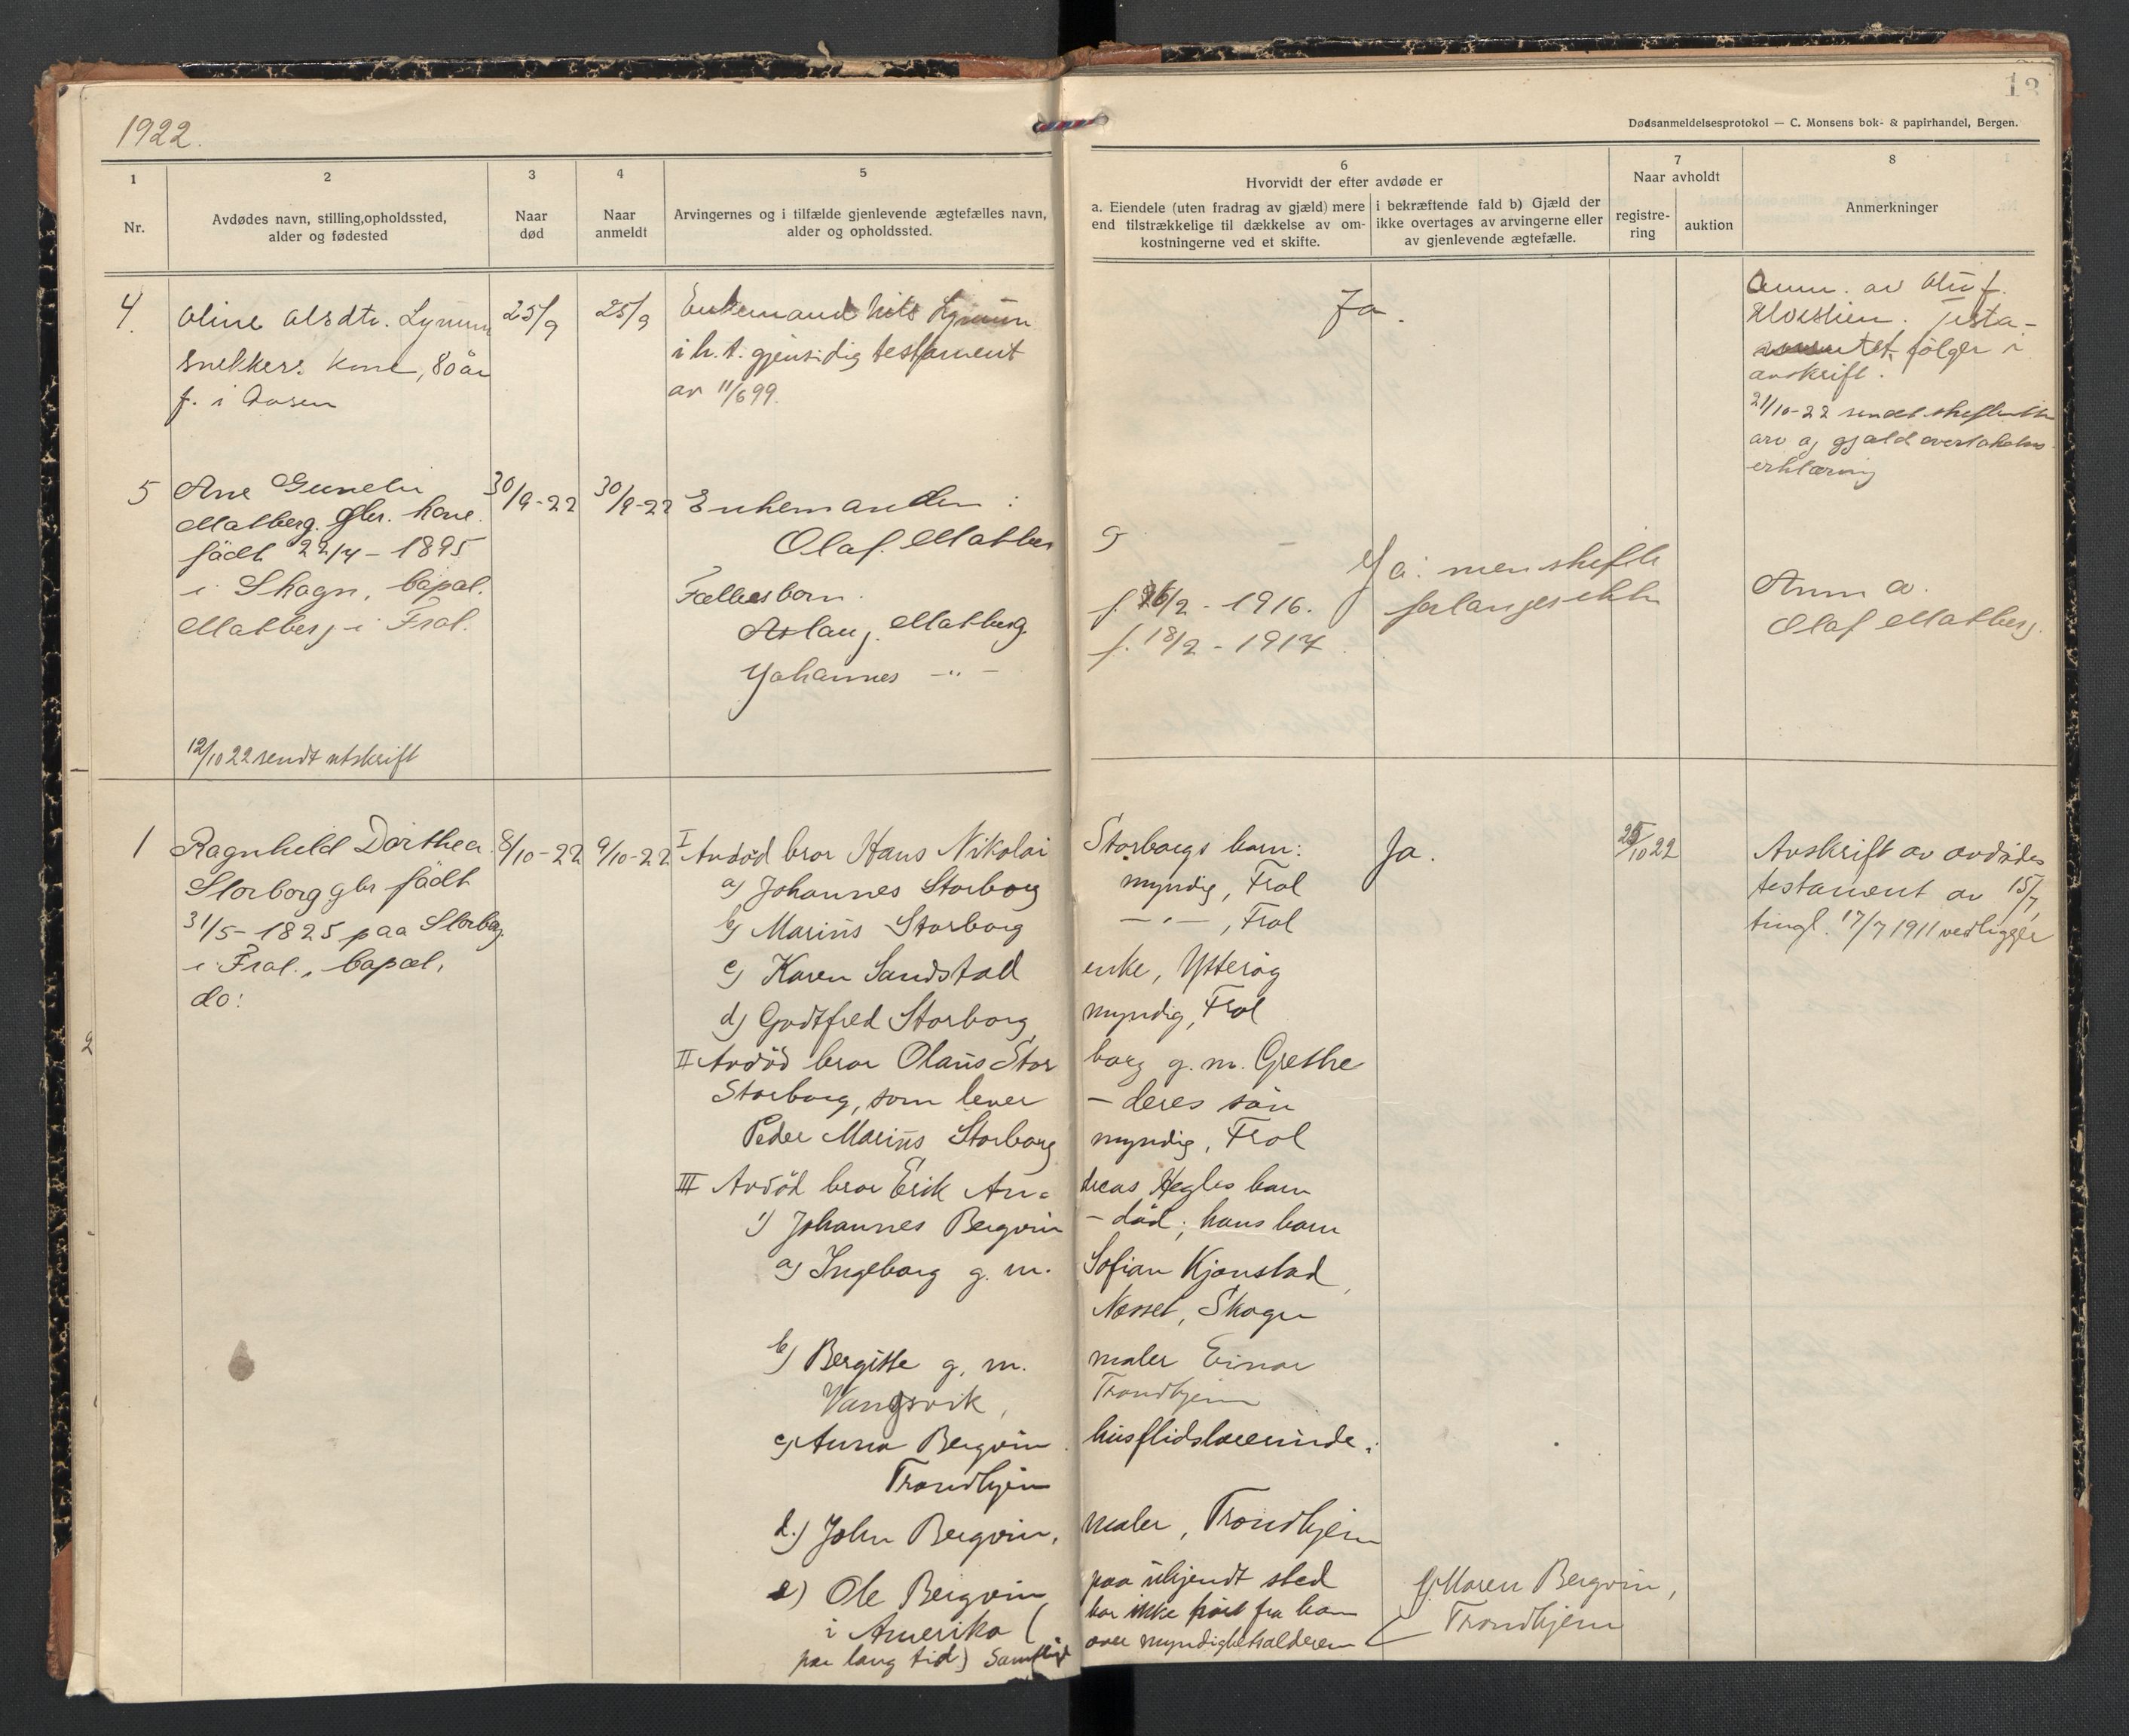 1922.
13
Dødsanmeldelsesprotokol — C. Monsens bok- & papirhandel, Bergen.
1
Nr.
2
Avdødes navn, stilling, opholdssted,
alder og fødested
3
Naar
død
4
Naar
anmeldt
5
Arvingernes og i tilfælde gjenlevende ægtefælles navn,
alder og opholdssted.
6
Hvorvidt der efter avdøde er
a. Eiendele (uten fradrag av gjæld) mere
end tilstrækkelige til dækkelse av om-
kostningerne ved et skifte.
i bekræftende fald b) Gjæld der
ikke overtages av arvingerne eller
av gjenlevende ægtefælle.
7
Naar avholdt
registre-
ring
auktion
8
Anmerkninger
4.
Oline Olsdtr. Lynum
snekkers kone, 80 år
f. i Aasen
25/9
25/9
Enkemand Nils Lynum
i h. t. gjensidig testament
av 11/6 99.
Ja.
Anm. av Oluf
Testa-
mentet følger i
avskrift.
21/10-22 sendt
arv og gjæld overtakelses
erklæring
5
Ane Gurelie
Matberg. gbr. kone.
født 22/4 - 1895
i Skogn, bopæl.
Matberg i Frol.
30/9-22
30/9-22
Enkemanden:
Olaf Matberg
Fællesbarn.
Aslaug Matberg
f. 26/2 - 1916.
Johannes —"—
f. 18/2 - 1917.
Ja: men skifte
forlanges ikke
Anm av
Olaf Matberg.
12/10 22 sendt utskrift
1
Ragnhild Dorthea
Storborg gbr født
31/5- 1825 paa Storborg
i Frol., bopæl,
do:
8/10-22
9/10-22
I Avdød bror Hans Nikolai Storborgs barn:
a) Johannes Storborg myndig, Frol
b) Marius Storborg — " — , Frol
c) Karen Sandstad enke, Ytterøy
d) Godtfred Storborg myndig, Frol
II Avdød bror Olaus Stor borg g. m. Grethe
Storborg, som lever - deres søn
Peder Marius Storborg myndig, Frol
III Avdød bror Erik An= dreas Hegles barn
1) Johannes Bergvin - død; hans barn
a) Ingeborg g. m. Sofian Kjønstad,
Nesset, Skogn
b) Bergitte g. m. maler Einar
Vangsvik, Trondhjem
c) Anna Bergvin husflidslærerinde;
Trondhjem
d.) John Bergvin, maler, Trondhjem
e) Ole Bergvin paa ukjendt sted
i Amerika ( har ikke hørt fra ham
paa lang tid) Samtlige over myndighetsalderen
f) Maren Bergvin,
Trondhjem
Ja.
25/10 22
Avskrift av avdødes
testament av 15/7,
tingl. 17/7 1911 vedligger
2